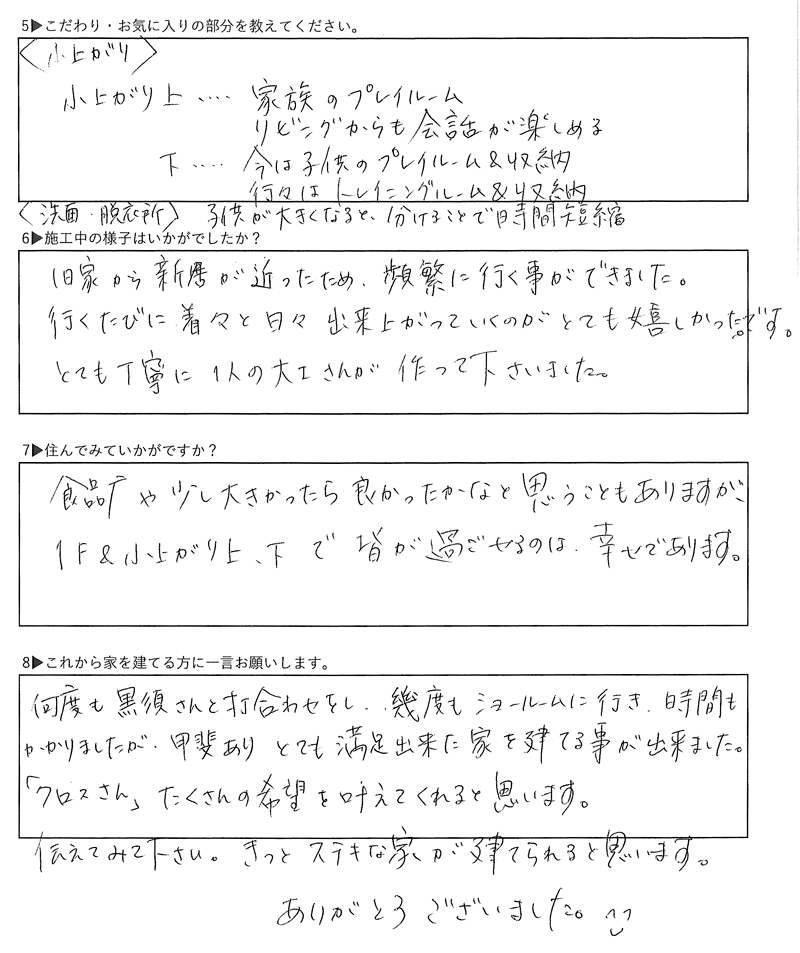 5▶こだわり・お気に入りの部分を教えてください。
〈小上がり〉
小上がり上‥‥ 家族のプレイルーム
リビングからも会話が楽しめる
下‥‥ 今は子供のプレイルーム&収納
行々はトレイニングルーム&収納
〈洗面・脱衣所〉 子供が大きくなると、分けることで時間短縮
6▶施工中の様子はいかがでしたか?
旧家から新居が近ったため、頻繁に行く事ができました。
行くたびに着々と日々出来上がっていくのがとても嬉しかったです。
とても丁寧に1人の大工さんが作って下さいました。
7▶住んでみていかがですか?
食品庫や少し大きかったら良かったかなと思うこともありますが、
1F&小上がり上、下で皆が過ごせるのは、幸せであります。
8▶これから家を建てる方に一言お願いします。
何度も黒須さんと打合わせをし、幾度もショールームに行き、時間も
かかりましたが、甲斐ありとても満足出来た家を建てる事が出来ました。
「クロスさん」たくさんの希望を叶えてくれると思います。
伝えてみて下さい。きっとステキな家が建てられると思います。
ありがとうございました。